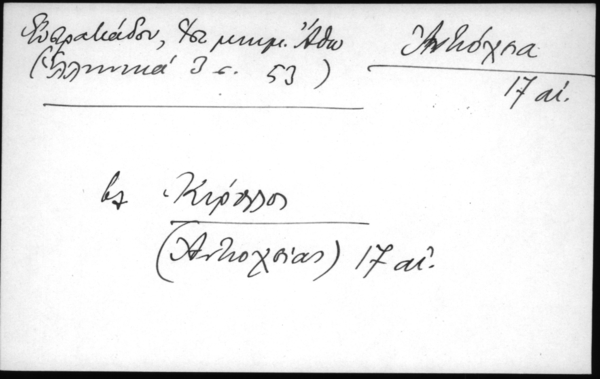 Εὐστρατιάδου, Ἱστ. μνημ. Ἄθω
(Ἑλληνικά 3 σ. 53)
Ἀντιόχεια
17 αἰ.
βλ Κύριλλος
(Ἀντιοχείας) 17 αἰ.